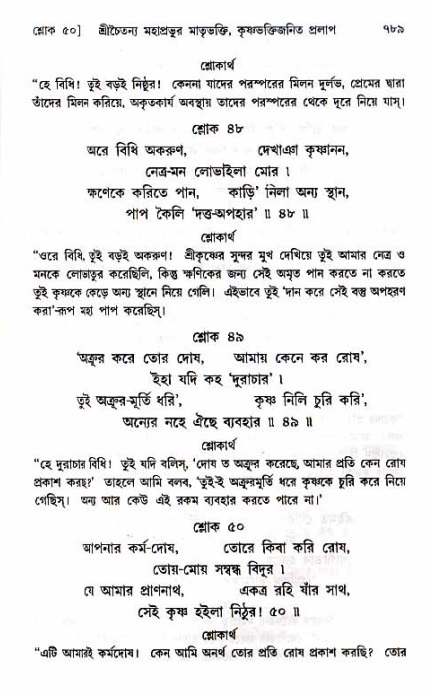 শ্লোক ৫০] শ্রীচৈতন্য মহাপ্রভুর মাতৃভক্তি, কৃষ্ণভক্তিজনিত প্রলাপ ৭৮৯
শ্লোকার্থ
“হে বিধি! তুই বড়ই নিষ্ঠুর! কেননা যাদের পরস্পরের মিলন দুর্লভ, প্রেমের দ্বারা
তাঁদের মিলন করিয়ে, অকৃতকার্য অবস্থায় তাদের পরস্পরের থেকে দূরে নিয়ে যাস্।
শ্লোক ৪৮
অরে বিধি অকরুণ, দেখাঞা কৃষ্ণানন,
নেত্র-মন লোভাইলা মোর।
ক্ষণেকে করিতে পান, কাড়ি’ নিলা অন্য স্থান,
পাপ কৈলি ‘দত্ত-অপহার’ ॥ ৪৮ ॥
শ্লোকার্থ
“ওরে বিধি, তুই বড়ই অকরুণ! শ্রীকৃষ্ণের সুন্দর মুখ দেখিয়ে তুই আমার নেত্র ও
মনকে লোভাতুর করেছিলি, কিন্তু ক্ষণিকের জন্য সেই অমৃত পান করতে না করতে
তুই কৃষ্ণকে কেড়ে অন্য স্থানে নিয়ে গেলি। এইভাবে তুই ‘দান করে সেই বস্তু অপহরণ
করা’-রূপ মহা পাপ করেছিস্।
শ্লোক ৪৯
‘অক্রুর করে তোর দোষ, আমায় কেনে কর রোষ’,
ইহা যদি কহ ‘দুরাচার’।
তুই অক্রুর-মূর্তি ধরি’, কৃষ্ণ নিলি চুরি করি’,
অন্যের নহে ঐছে ব্যবহার ॥ ৪৯ ॥
শ্লোকার্থ
“হে দুরাচার বিধি! তুই যদি বলিস্, ‘দোষ ত অক্রুর করেছে, আমার প্রতি কেন রোষ
প্রকাশ করছ?’ তাহলে আমি বলব, ‘তুই-ই অক্রুরমূর্তি ধরে কৃষ্ণকে চুরি করে নিয়ে
গেছিস্। অন্য আর কেউ এই রকম ব্যবহার করতে পারে না।’
শ্লোক ৫০
আপনার কর্ম-দোষ, তোরে কিবা করি রোষ,
তোয়-মোয় সম্বন্ধ বিদূর।
যে আমার প্রাণনাথ, একত্র রহি যাঁর সাথ,
সেই কৃষ্ণ হইলা নিঠুর! ৫০ ॥
শ্লোকার্থ
“এটি আমারই কর্মদোষ। কেন আমি অনর্থ তোর প্রতি রোষ প্রকাশ করছি? তোর